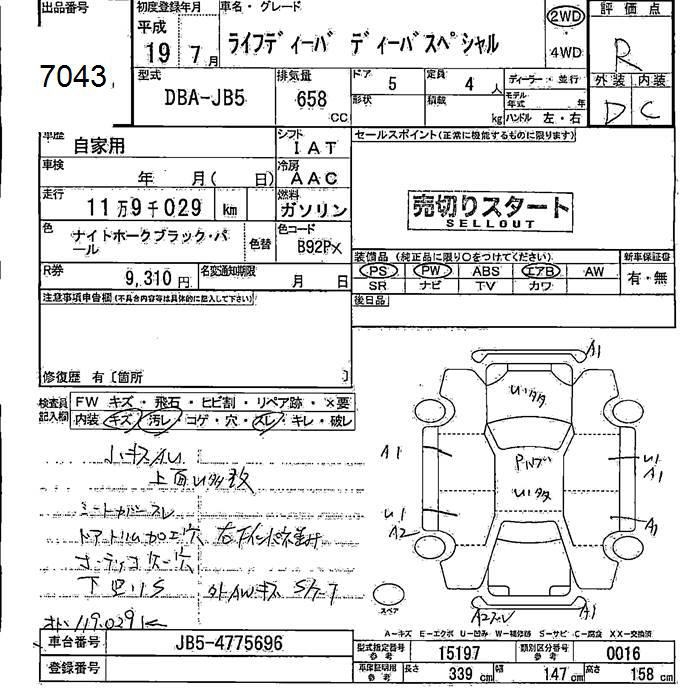 出品番号
7043
初度登録年月
平成
19 7月
車名・グレード
ライフディーバ ディーバスペシャル
2WD
4WD
評価点
R
外装 内装
D C
型式
DBA-JB5
排気量
658 CC
ドア 5
定員 4 人
形状
積載 kg
ディーラー・並行
モデル年式 年
ハンドル 左・右
車歴
自家用
シフト
IAT
車検
年 月( 日)
冷房
AAC
走行
11万9千029 km
燃料
ガソリン
色
ナイトホークブラック・パール
色替
色コード
B92PX
R券
9,310円
名変通知期限
月 日
セールスポイント(正常に機能するものに限ります)
売切りスタート
SELLOUT
装備品(純正品に限り○をつけてください)
新車保証書
PS PW ABS エアB AW
SR ナビ TV カワ
有・無
後日品
注意事項申告欄(不具合内容等は具体的に記入して下さい)
修復歴 有〔箇所 〕
検査員記入欄
FW キズ・飛石・ヒビ割・リペア跡・×要
内装・キズ・汚レ・コゲ・穴・スレ・キレ・破レ
小キズAU
上面U1多数
シートカバースレ
ドアトリム加工穴
下回りS
外AWキズ
119,029
A1
U1多
Pハゲ
U1多
A1
U1
A2
U1
A1
A1
A2
A1
スペア
A-キズ E-エクボ U-凹み W-補修跡 S-サビ C-腐食 XX-交換済
車台番号
JB5-4775696
登録番号
型式指定番号 参考
15197
類別区分番号 参考
0016
車庫証明用 参考
長さ 339 cm
幅 147 cm
高さ 158 cm